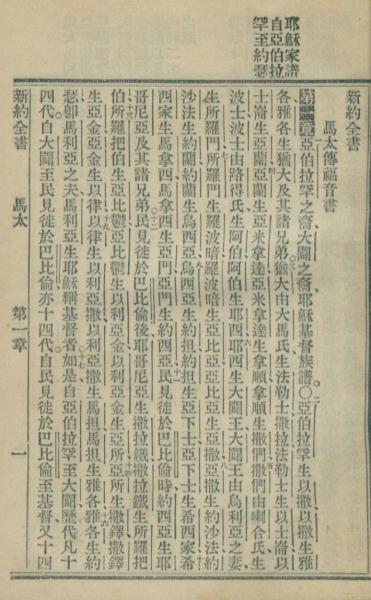 耶穌家譜
自亞伯拉
罕至約瑟
新約全書
馬太傳福音書
第一章亞伯拉罕之裔大闢之裔耶穌基督族譜○亞伯拉罕生以撒以撒生雅
各雅各生猶大及其諸兄弟猶大由大馬氏生法勒士撒拉法勒士生以士崙以
士崙生亞蘭亞蘭生亞米拿達亞米拿達生拿順拿順生撒們撒們由喇合氏生
波士波士由路得氏生阿伯阿伯生耶西耶西生大闢王大闢王由烏利亞之妻
生所羅門所羅門生羅波暗羅波暗生亞比亞亞比亞生亞撒亞撒生約沙法約
沙法生約蘭約蘭生烏西亞烏西亞生約担約担生亞下士亞下士生希西家希
西家生馬拿西馬拿西生亞門亞門生約西亞民見徙於巴比倫時約西亞生耶
哥尼亞及其諸兄弟民見徙於巴比倫後耶哥尼亞生撒拉鐵撒拉鐵生所羅把
伯所羅把伯生亞比鬱亞比鬱生以利亞金以利亞金生亞所亞所生撒鐸撒鐸
生亞金亞金生以律以律生以利亞撒以利亞撒生馬担馬担生雅各雅各生約
瑟卽馬利亞之夫馬利亞生耶穌稱基督者如是自亞伯拉罕至大闢歷代凡十
四代自大闢至民見徙於巴比倫亦十四代自民見徙於巴比倫至基督又十四
新約全書 馬太 第一章 一